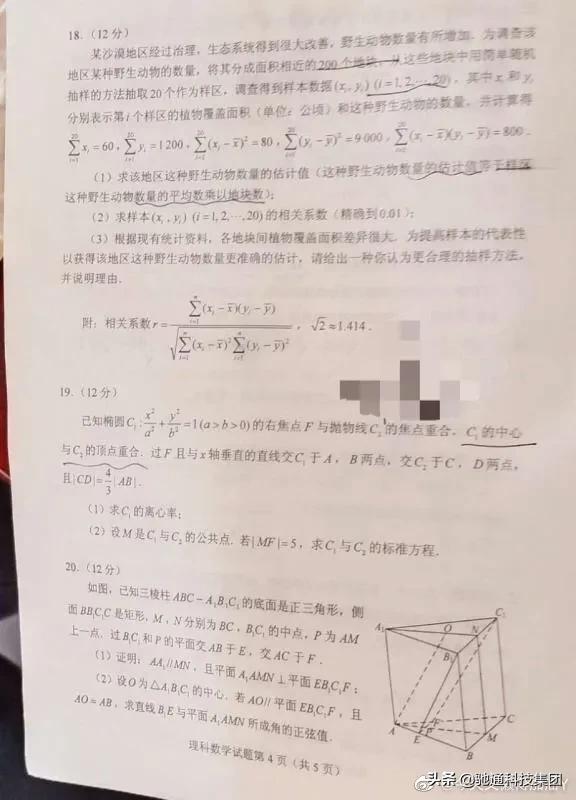 18.（12分）
某沙漠地区经过治理，生态系统得到很大改善，野生动物数量有所增加．为调查该
地区某种野生动物的数量，将其分成面积相近的200个地块，从这些地块中用简单随机
抽样的方法抽取20个作为样区，调查得到样本数据(xᵢ, yᵢ) (i=1,2,⋯,20)，其中xᵢ和yᵢ
分别表示第i个样区的植物覆盖面积（单位：公顷）和这种野生动物的数量，并计算得
∑xᵢ=60，∑yᵢ=1200，∑(xᵢ−x̄)²=80，∑(yᵢ−ȳ)²=9000，∑(xᵢ−x̄)(yᵢ−ȳ)=800．
（1）求该地区这种野生动物数量的估计值（这种野生动物数量的估计值等于样区
这种野生动物数量的平均数乘以地块数）；
（2）求样本(xᵢ, yᵢ) (i=1,2,⋯,20)的相关系数（精确到0.01）；
（3）根据现有统计资料，各地块间植物覆盖面积差异很大．为提高样本的代表性
以获得该地区这种野生动物数量更准确的估计，请给出一种你认为更合理的抽样方法，
并说明理由．
附：相关系数r=∑(xᵢ−x̄)(yᵢ−ȳ)/√(∑(xᵢ−x̄)²∑(yᵢ−ȳ)²)，√2≈1.414．
19.（12分）
已知椭圆C₁:x²/a²+y²/b²=1(a>b>0)的右焦点F与抛物线C₂的焦点重合，C₁的中心
与C₂的顶点重合．过F且与x轴垂直的直线交C₁于A，B两点，交C₂于C，D两点，
且|CD|=4/3|AB|．
（1）求C₁的离心率；
（2）设M是C₁与C₂的公共点．若|MF|=5，求C₁与C₂的标准方程．
20.（12分）
如图，已知三棱柱ABC−A₁B₁C₁的底面是正三角形，侧
面BB₁C₁C是矩形，M，N分别为BC，B₁C₁的中点，P为AM
上一点．过B₁C₁和P的平面交AB于E，交AC于F．
（1）证明：AA₁//MN，且平面A₁AMN⊥平面EB₁C₁F；
（2）设O为△A₁B₁C₁的中心．若AO//平面EB₁C₁F，且
AO=AB，求直线B₁E与平面A₁AMN所成角的正弦值．
A₁
O
N
C₁
B₁
A
E
P
F
C
M
B
理科数学试题第4页（共5页）
头条 @驰通科技集团